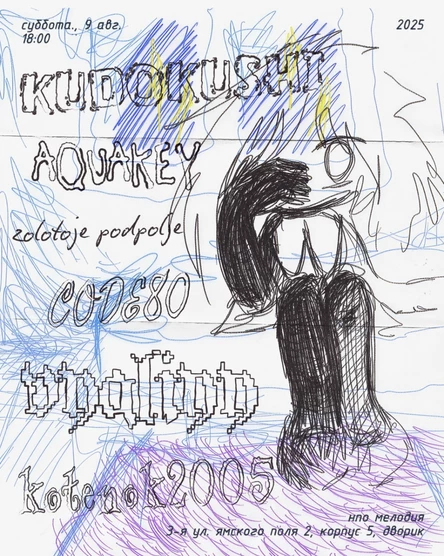 суббота., 9 авг.
18:00
2025
KUDOKUSHI
AQUAKEY
zolotoje podpolje
CODE80
upalipp
kotenok2005
нпо мелодия
3-я ул. ямского поля 2, корпус 5, дворик